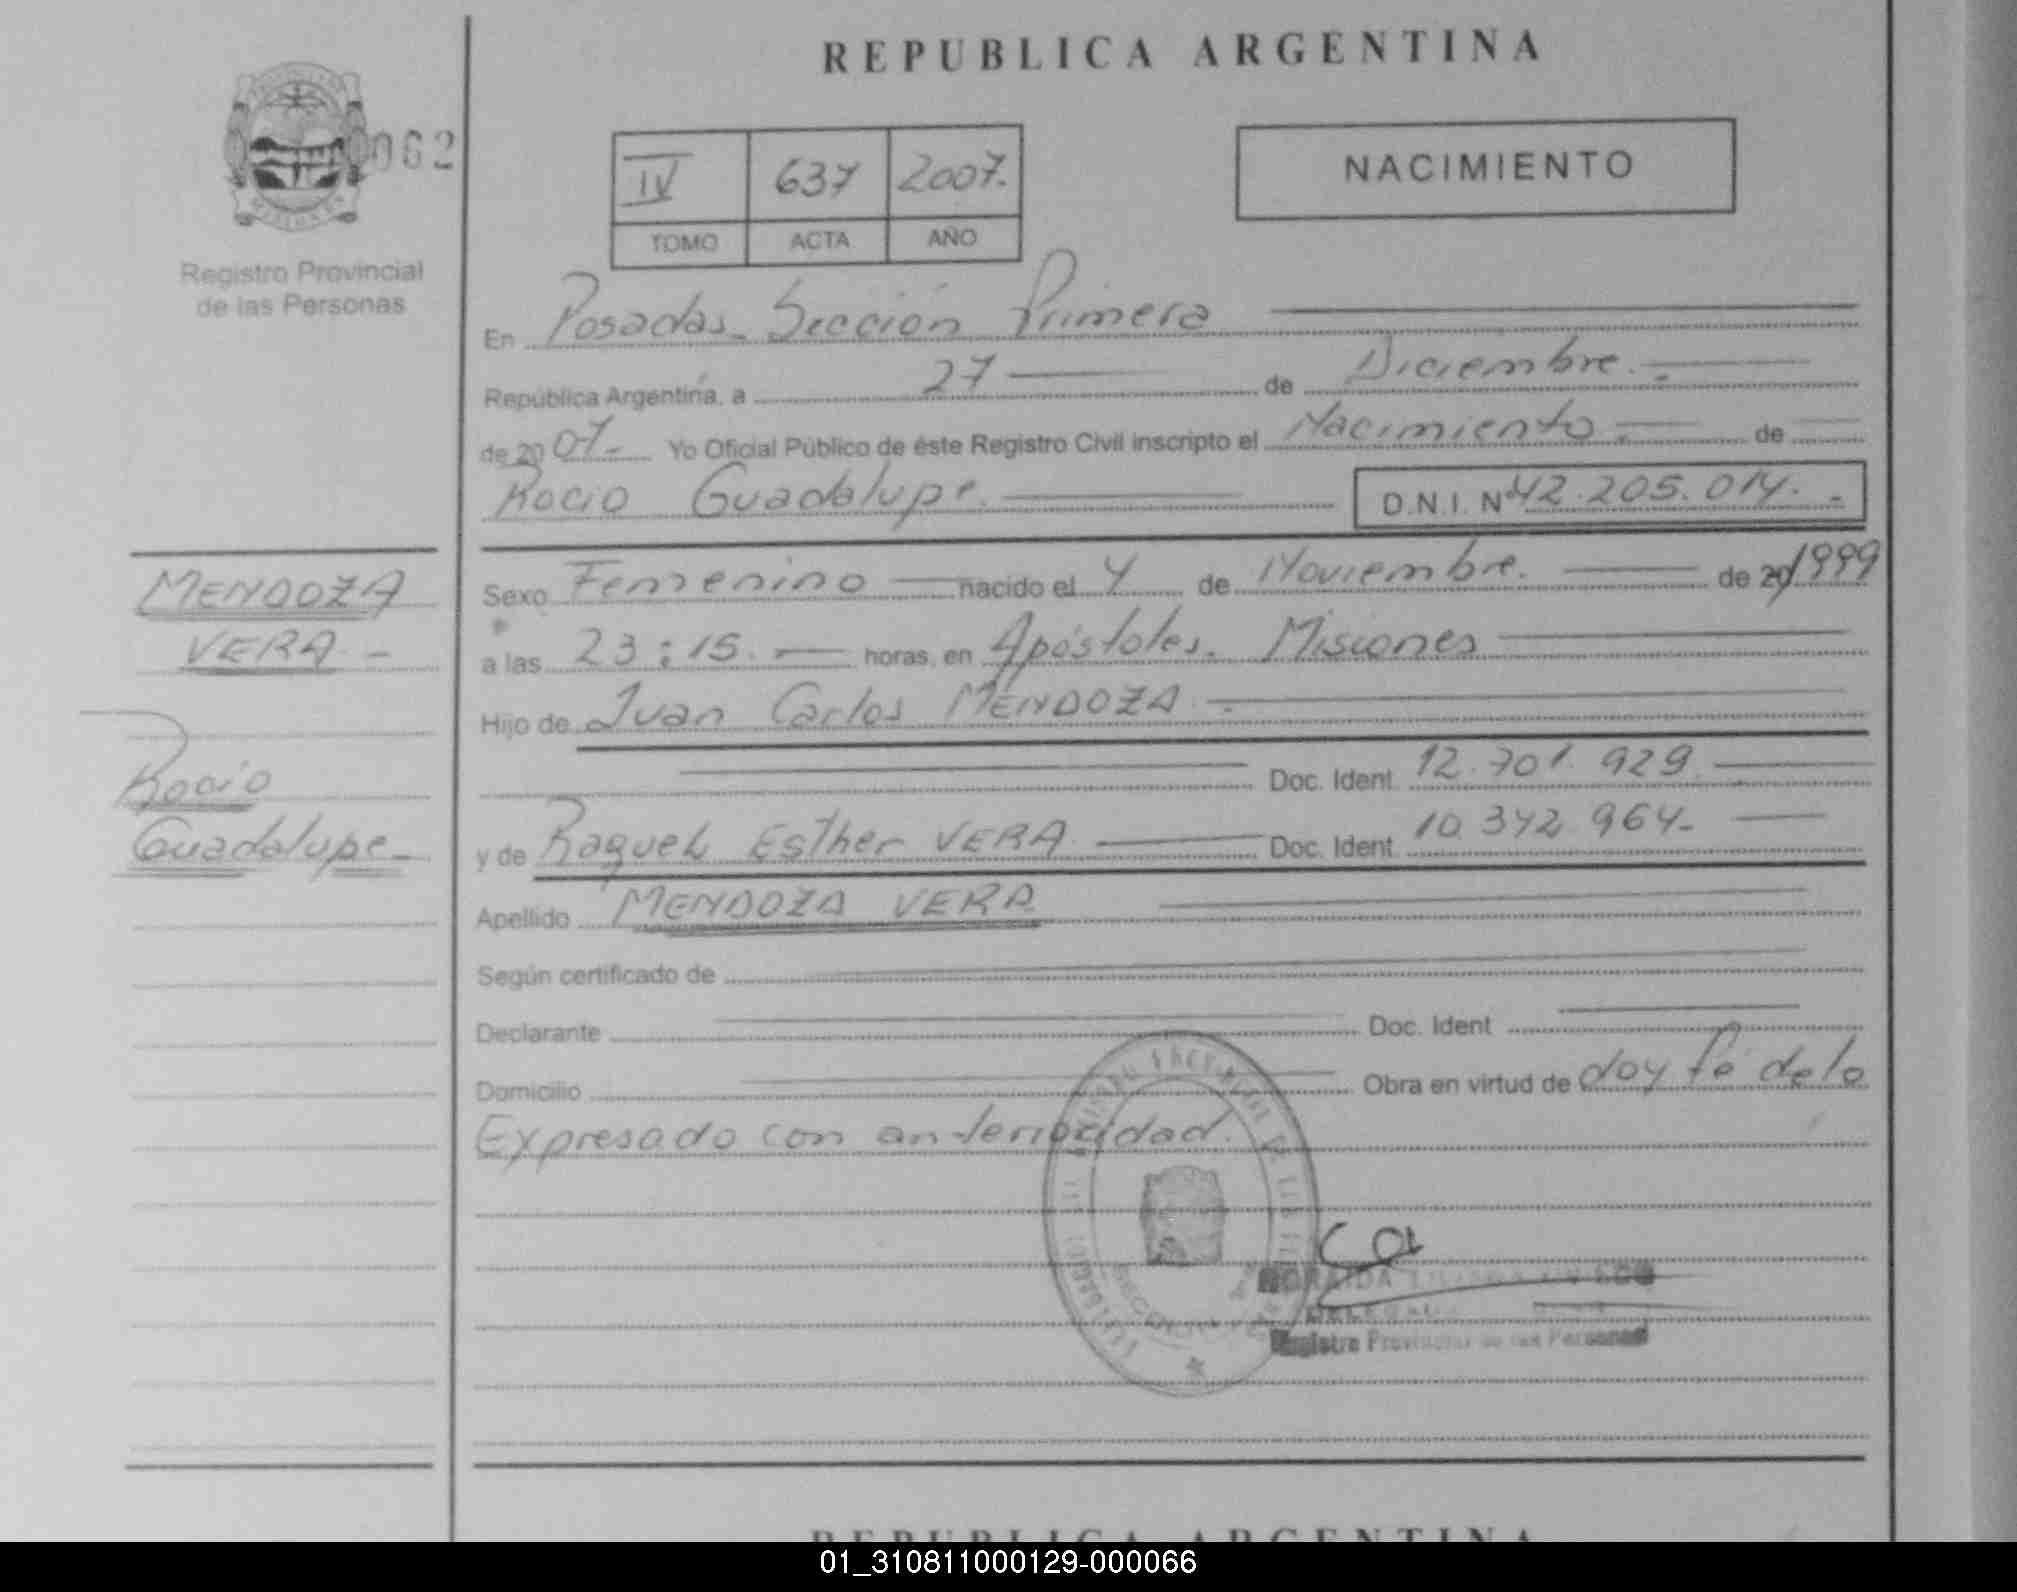 REPUBLICA ARGENTINA
062
MISIONES
Registro Provincial
de las Personas
IV 637 2007.
TOMO ACTA AÑO
NACIMIENTO
En Posadas - Sección Primera
República Argentina, a 27 de Diciembre.-
de 2007- Yo Oficial Público de éste Registro Civil inscripto el Nacimiento - de
Rocio Guadalupe. D.N.I. Nº 42.205.014. -
MENDOZA
VERA -
Rocio
Guadalupe -
Sexo Femenino nacido el 4 de Noviembre. de 20/1999
a las 23:15. - horas, en Apóstoles. Misiones
Hijo de Juan Carlos MENDOZA -
Doc. Ident. 12.701.929
y de Raquel Esther VERA Doc. Ident. 10.342.964-
Apellido MENDOZA VERA
Según certificado de
Declarante Doc. Ident
Domicilio Obra en virtud de doy fé de lo
Expresado con anterioridad.
Registro Provincial de las Personas
REPUBLICA ARGENTINA
01_310811000129-000066